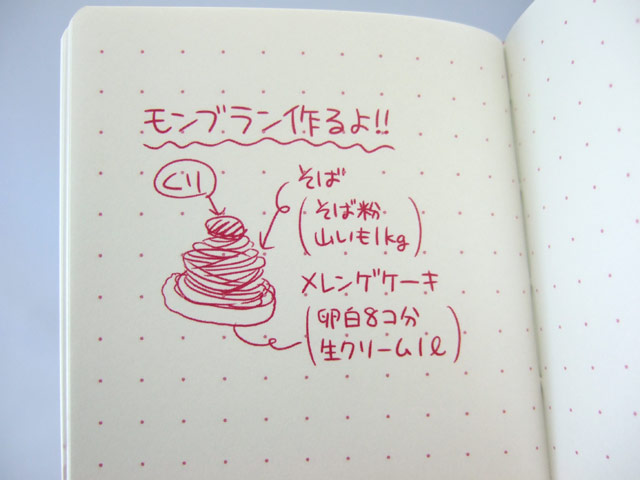 モンブラン作るよ!!
くり
そば
(そば粉
山いも1kg)
メレンゲケーキ
(卵白8コ分
生クリーム1l)